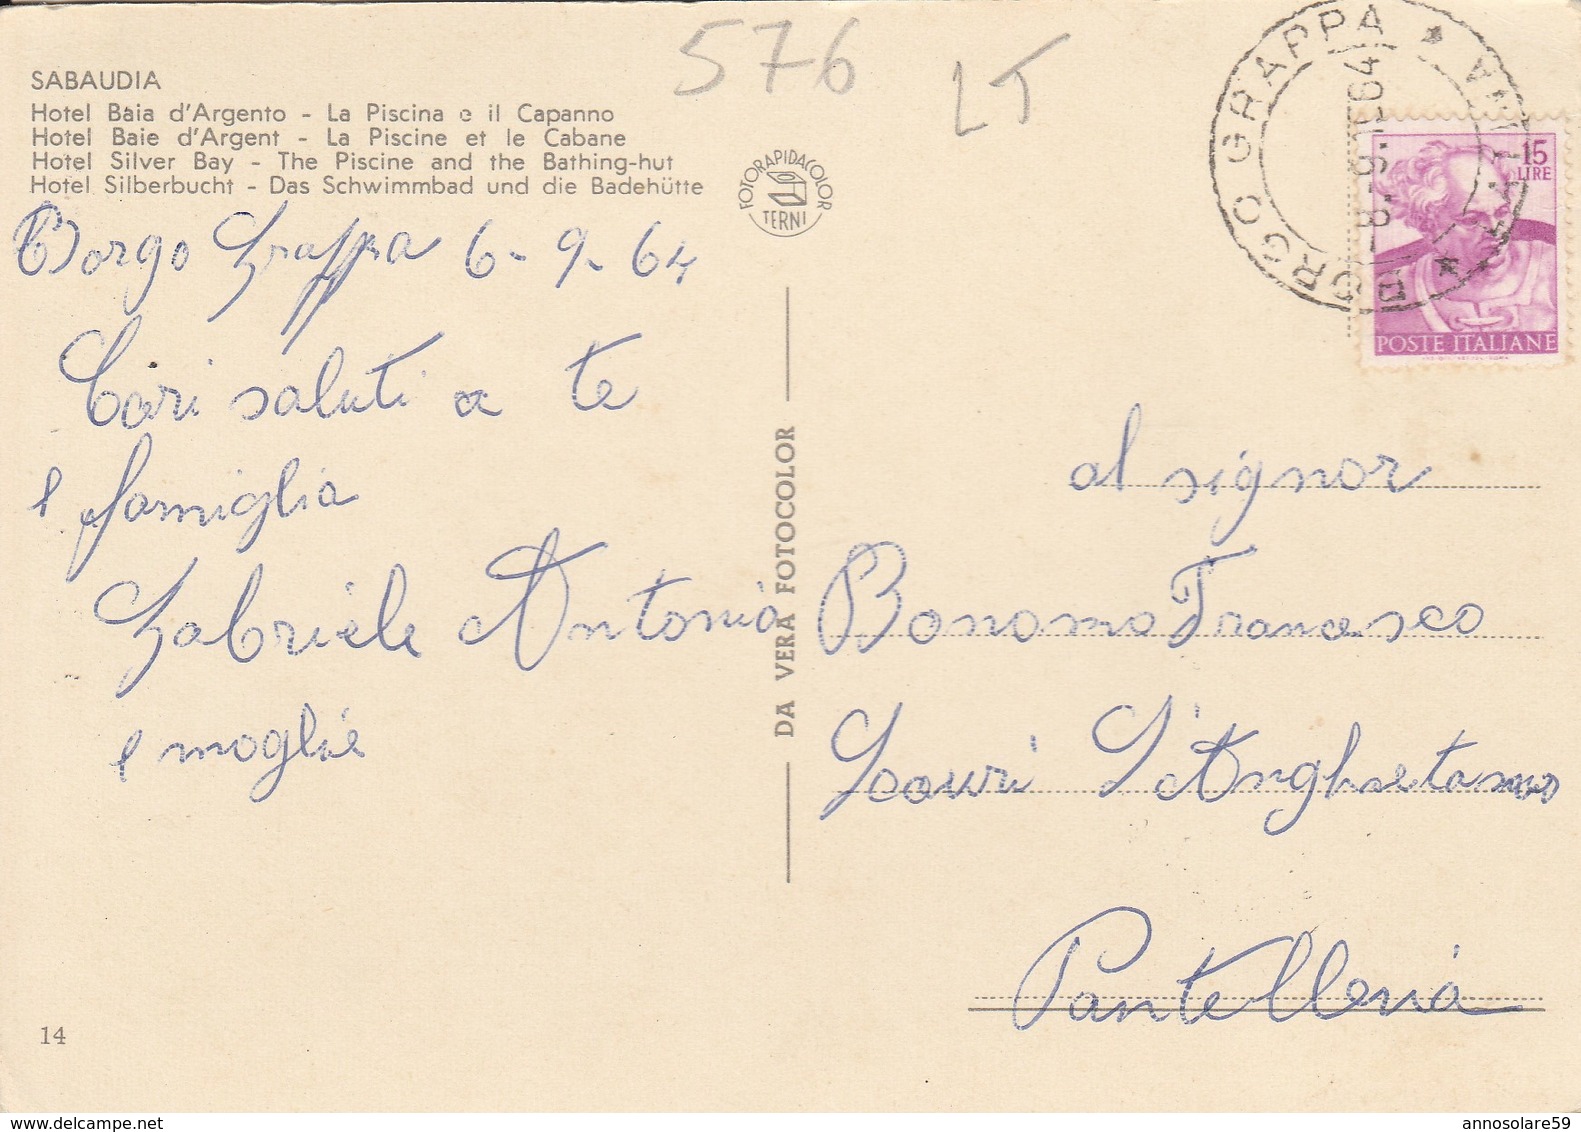 576
LT
SABAUDIA
Hotel Baia d'Argento - La Piscina e il Capanno
Hotel Baie d'Argent - La Piscine et le Cabane
Hotel Silver Bay - The Piscine and the Bathing-hut
Hotel Silberbucht - Das Schwimmbad und die Badehütte
FOTORAPIDACOLOR
TERNI
BORGO GRAPPA * LATINA *
8-9-64
15
LIRE
POSTE ITALIANE
Borgo Grappa 6-9-64
Cari saluti a te
e famiglia
Gabriele Antonia
e moglie
DA VERA FOTOCOLOR
al signor
Bonomo Francesco
Scauri
Pantelleria
14
annosolare59